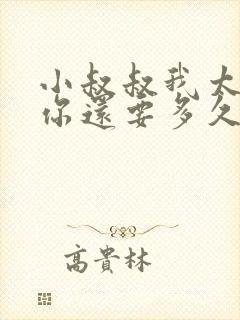 小叔叔我太
你還要多久
高貴林